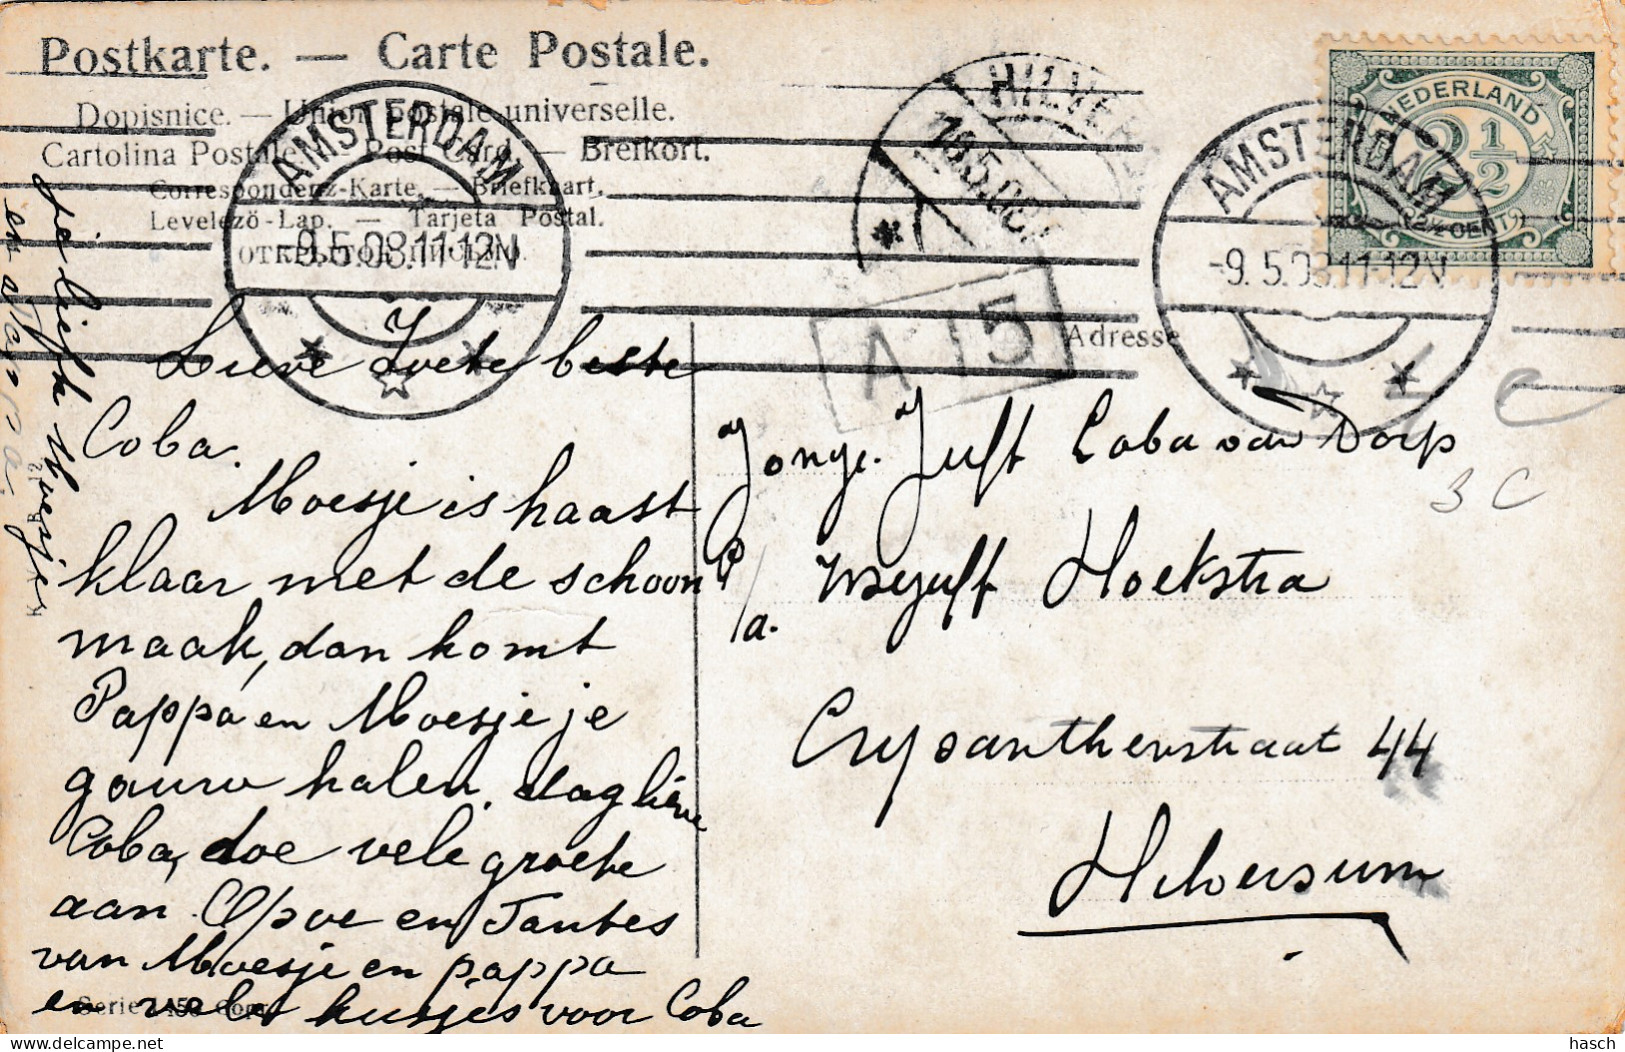 Postkarte. — Carte Postale.
Dopisnice. — Union postale universelle.
Cartolina Postale — Post Card — Brefkort.
Correspondenz-Karte. — Briefkaart.
Levelező-Lap. — Tarjeta Postal.
ОТКРЫТОЕ ПИСЬМО.
AMSTERDAM
-9.5.08.11-12N
HILVER
10.5.08.
AMSTERDAM
-9.5.08 11-12N
NEDERLAND
2½
(2½ CENT)
A 15
Adresse
Lieve Zoete beste
Coba.
Moesje is haast
klaar met de schoon
maak, dan komt
Pappa en Moesje je
gauw halen. dag lieve
Coba, doe vele groete
aan Opoe en Tantes
van Moesje en pappa
en vele kusjes voor Coba
je liefh Moesje
en Pappa
Jonge. Juft Coba van Dorp
P/a. Mejuft Hoekstra
Crysantherstraat 44
Hilversum
3 C
Serie 1450
hasch
delcampe.net